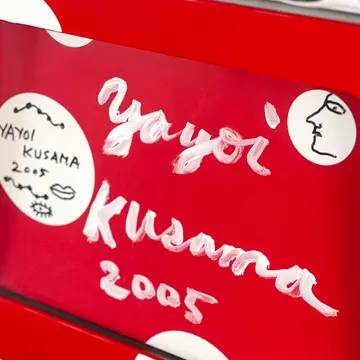 Yayoi
Kusama
2005
YAYOI
KUSAMA
2005